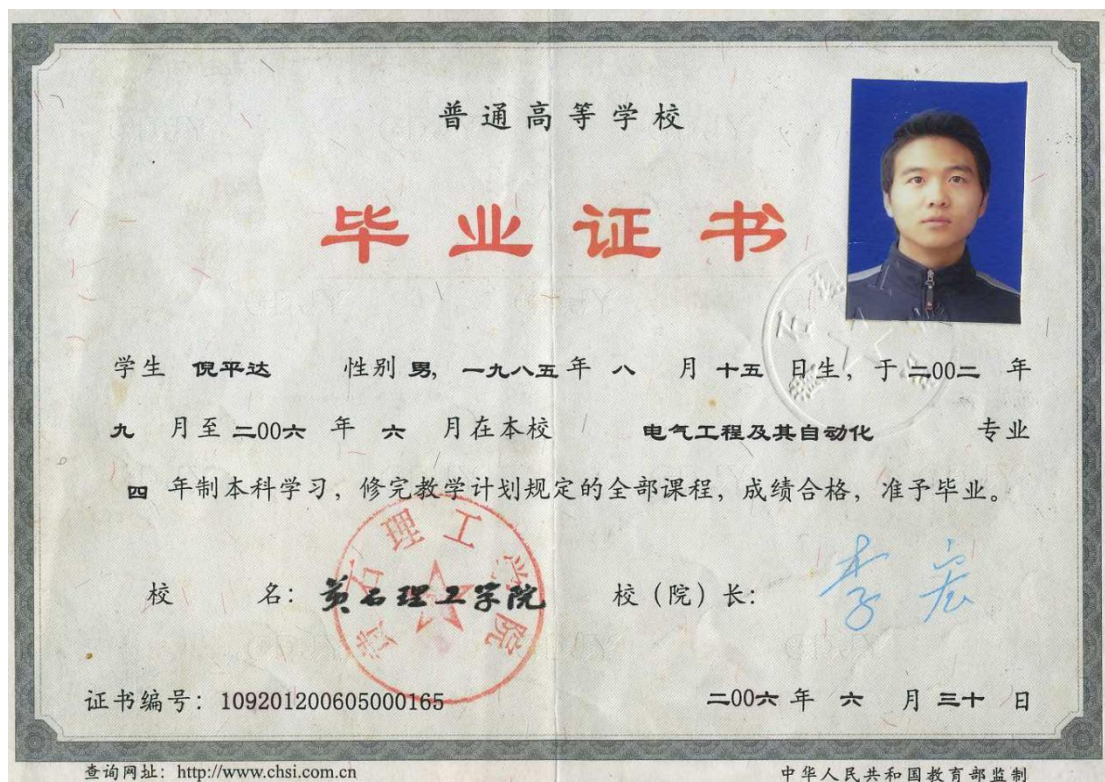 普通高等学校
毕业证书
学生 倪平达 性别 男, 一九八五年 八 月 十五 日生, 于 二00二 年
九 月至 二00六 年 六 月在本校 电气工程及其自动化 专业
四 年制本科学习, 修完教学计划规定的全部课程, 成绩合格, 准予毕业。
校 名: 黄石理工学院
黄石理工学院
校(院)长: 李宏
证书编号: 109201200605000165
二00六 年 六 月 三十 日
查询网址: http://www.chsi.com.cn
中华人民共和国教育部监制